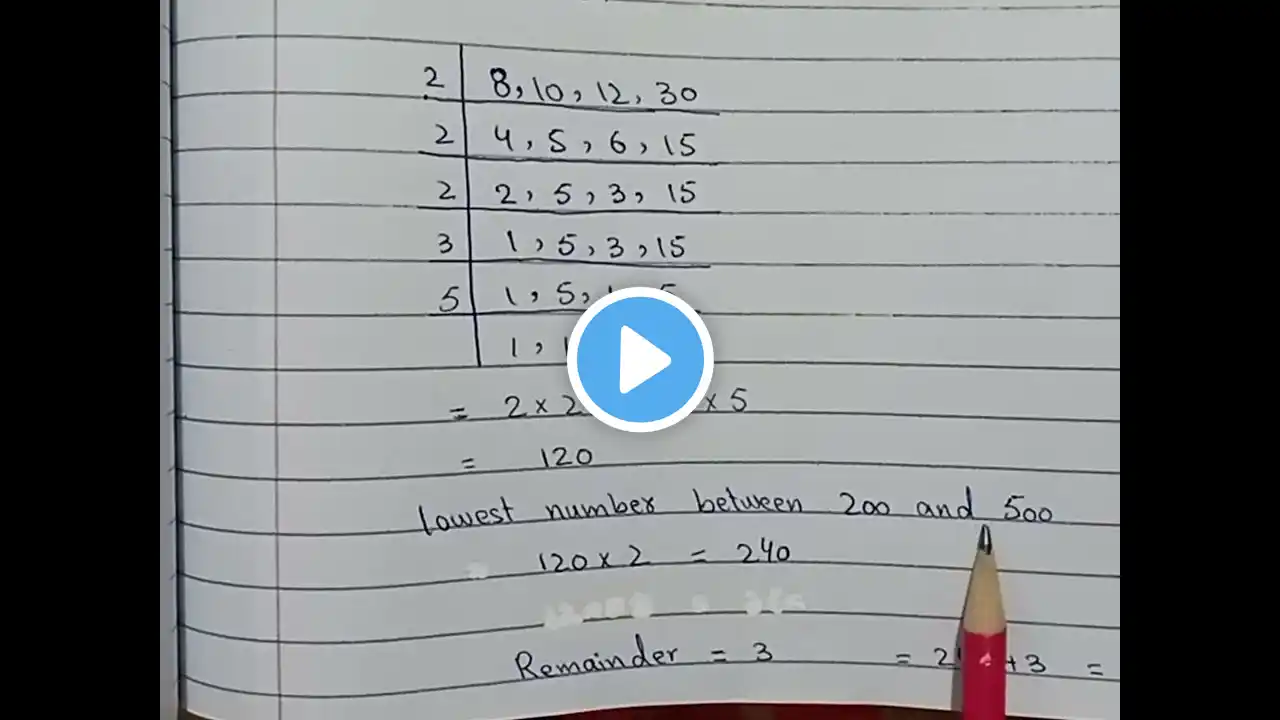 2 8, 10, 12, 30
2 4, 5, 6, 15
2 2, 5, 3, 15
3 1, 5, 3, 15
5 1, 5,
1,
= 2 × 2 × 5
= 120
lowest number between 200 and 500
120 × 2 = 240
Remainder = 3 = +3 =